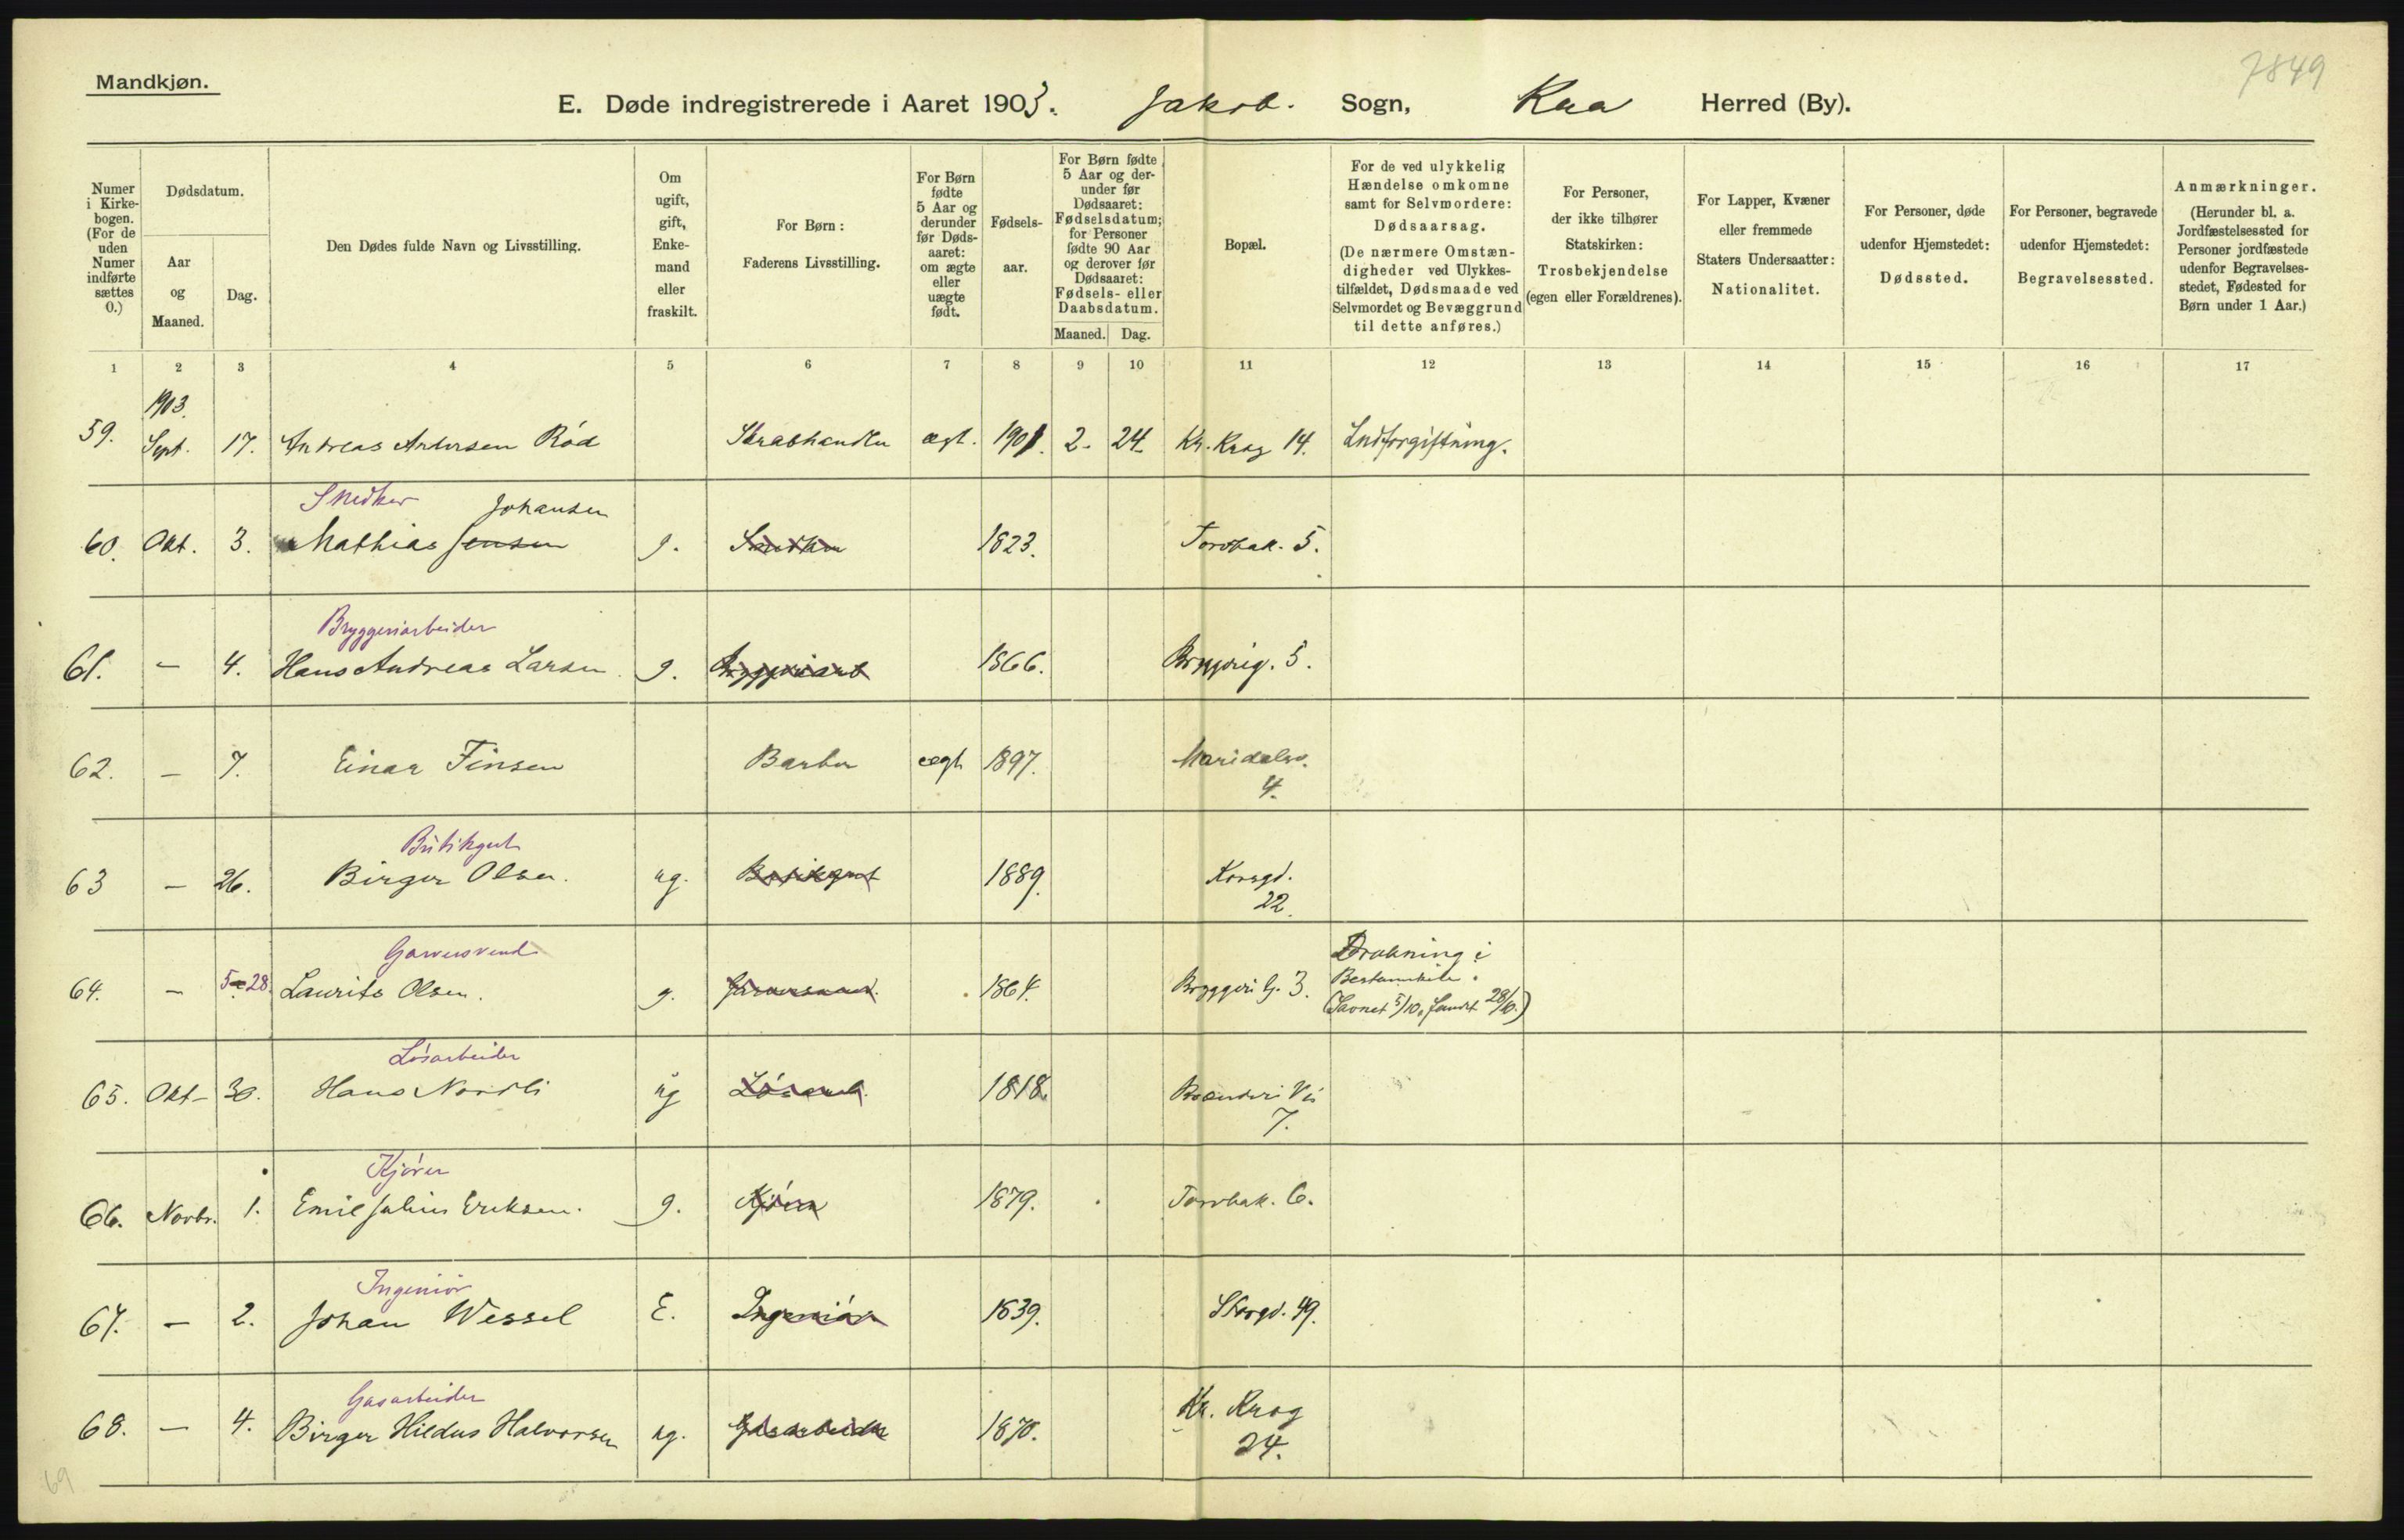 Mandkjøn.
7849
E. Døde indregistrerede i Aaret 1903. Jakob. Sogn, Kra Herred (By).
Numer i Kirkebogen. (For de uden Numer indførte sættes 0.)
Dødsdatum.
Aar og Maaned.
Dag.
Den Dødes fulde Navn og Livsstilling.
Om ugift, gift, Enkemand eller fraskilt.
For Børn: Faderens Livsstilling.
For Børn fødte 5 Aar og derunder før Dødsaaret: om ægte eller uægte født.
Fødselsaar.
For Børn fødte 5 Aar og derunder før Dødsaaret: Fødselsdatum; for Personer fødte 90 Aar og derover før Dødsaaret: Fødsels- eller Daabsdatum.
Maaned. Dag.
Bopæl.
For de ved ulykkelig Hændelse omkomne samt for Selvmordere: Dødsaarsag. (De nærmere Omstændigheder ved Ulykkestilfældet, Dødsmaade ved Selvmordet og Bevæggrund til dette anføres.)
For Personer, der ikke tilhører Statskirken: Trosbekjendelse (egen eller Forældrenes).
For Lapper, Kvæner eller fremmede Staters Undersaatter: Nationalitet.
For Personer, døde udenfor Hjemstedet: Dødssted.
For Personer, begravede udenfor Hjemstedet: Begravelsessted.
Anmærkninger. (Herunder bl. a. Jordfæstelsessted for Personer jordfæstede udenfor Begravelsesstedet, Fødested for Børn under 1 Aar.)
1 2 3 4 5 6 7 8 9 10 11 12 13 14 15 16 17
1903.
59. Sept. 17. Andreas Andersen Rød Skrabhandler ægt. 1901. 2. 24. Kr. Krog 14. Ludforgiftning.
Snedker Johansen
60. Okt. 3. Mathias Jensen g. Snedker 1823. Torvbak. 5.
Bryggeriarbeider
61. - 4. Hans Andreas Larsen g. Bryggeriarb 1866. Bryggerig. 5.
62. - 7. Einar Finsen Barber ægt 1897. Maridalsv.
4.
Butikgut
63 - 26. Birger Olsen. ug. Butikgut 1889. Korsgd.
22.
Garversvend
64. - 5-28. Laurits Olsen. g. Garversvend. 1864. Bryggeri G. 3. Drukning i
(Savnet 5/10, fundt 28/10.)
Løsarbeider
65. Okt- 30. Hans Nordli ug Løsarb. 1818. Brænderi Vei
7.
Kjører
66. Novbr. 1. Emil Julius Eriksen. g. Kjører 1879. Torvbak. 6.
Ingeniør
67. - 2. Johan Wessel E. Ingeniør 1839. Storgd. 49.
Gasarbeider
68. - 4. Birger Hildus Halvorsen ug. Gasarbeider 1870. Kr. Krog
24.
69